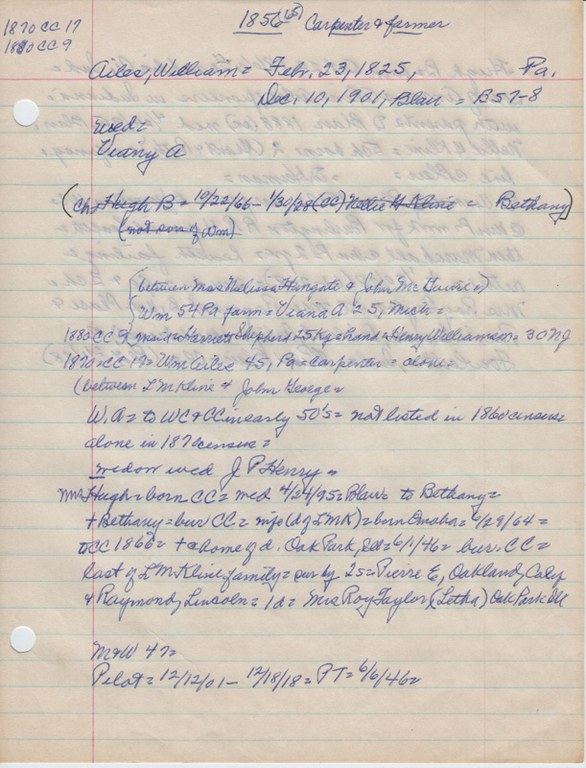 1870 CC 17
1880 CC 9
1856 (65) Carpenter & farmer
Ailes, William = Feb, 23, 1825, Pa.
Dec, 10, 1901, Blair = B57-8
wed =
Viany A
(Ch= Hugh B = 10/22/66 - 1/30/28 (CC) Nellie H Kline = Bethany)
(not son of Wm)
(between Mrs Melissa Hungate & John McGuire =)
Wm 54 Pa farm = Viana A 25, Mich =
1880 CC 9 maid = Harriett Shepherd 25 Ky = hand = Henry Williamson = 30 NJ
1870 = CC 17 = Wm Ailes 45, Pa = carpenter = alone =
(between L M Kline & John George =
W. A = to WC & CC in early 50's = not listed in 1860 census =
alone in 1870 census =
widow wed J P Henry =
Mrs Hugh = born CC = wed 4/24/95 = Blair = to Bethany =
+ Bethany = bur CC = (d of L M K) = born Omaha = 6/29/64 =
to CC 1866 = + @ home of d. Oak Park, Ill = 6/1/46 = bur. CC =
last of L M Kline family = sur by 2s = Pierre E, Oakland, Calif
& Raymond, Lincoln = 1d = Mrs Roy Taylor (Letha) Oak Park Ill
M & W 47 =
Pilot = 12/12/01 - 12/18/18 = PT = 6/6/46 =